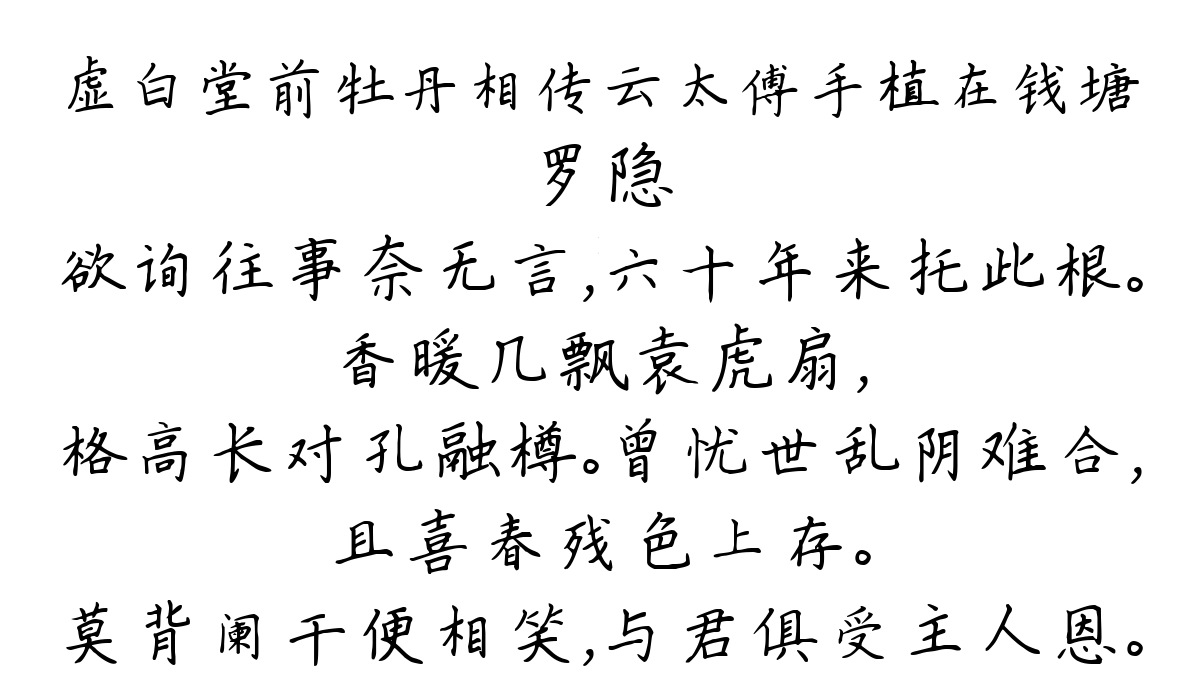 虚白堂前牡丹相传云太傅手植在钱塘
罗隐
欲询往事奈无言,六十年来托此根。
香暖几飘袁虎扇,
格高长对孔融樽。曾忧世乱阴难合,
且喜春残色上存。
莫背阑干便相笑,与君俱受主人恩。